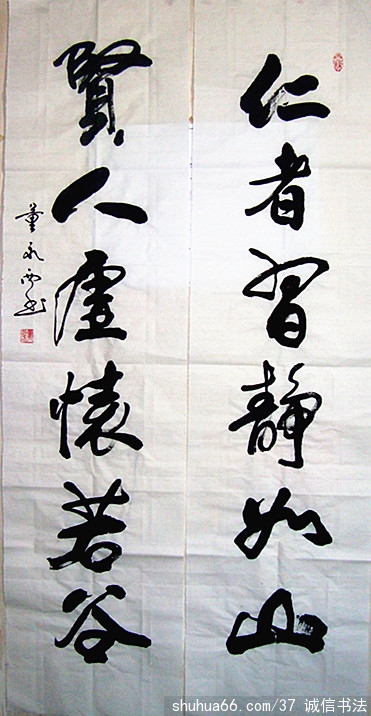 仁者習静如山
賢人虛懷若谷
董永西书
shuhua66.com/37 诚信书法